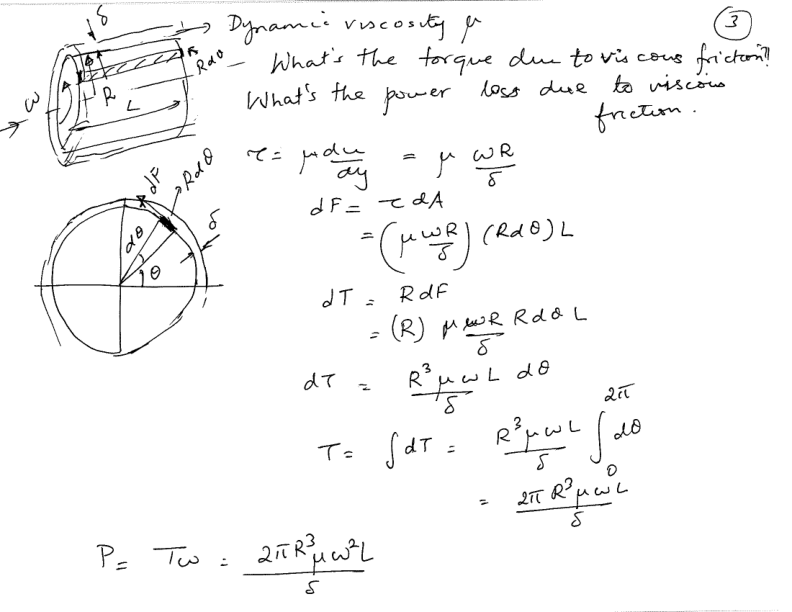 δ → Dynamic viscosity μ
3
- What's the torque due to viscous friction?!
What's the power loss due to viscous
friction.
Rdθ
ω
R
L
τ = μ du/dy = μ ωR/δ
dF = τ dA
= (μ ωR/δ) (Rdθ) L
dF
Rdθ
δ
dθ
θ
dT = R dF
= (R) μ ωR/δ R dθ L
dT = R³ μ ω L/δ dθ
T = ∫ dT = R³ μ ω L/δ ∫₀^2π dθ
= 2π R³ μ ω L/δ
P = Tω = 2π R³ μ ω² L/δ